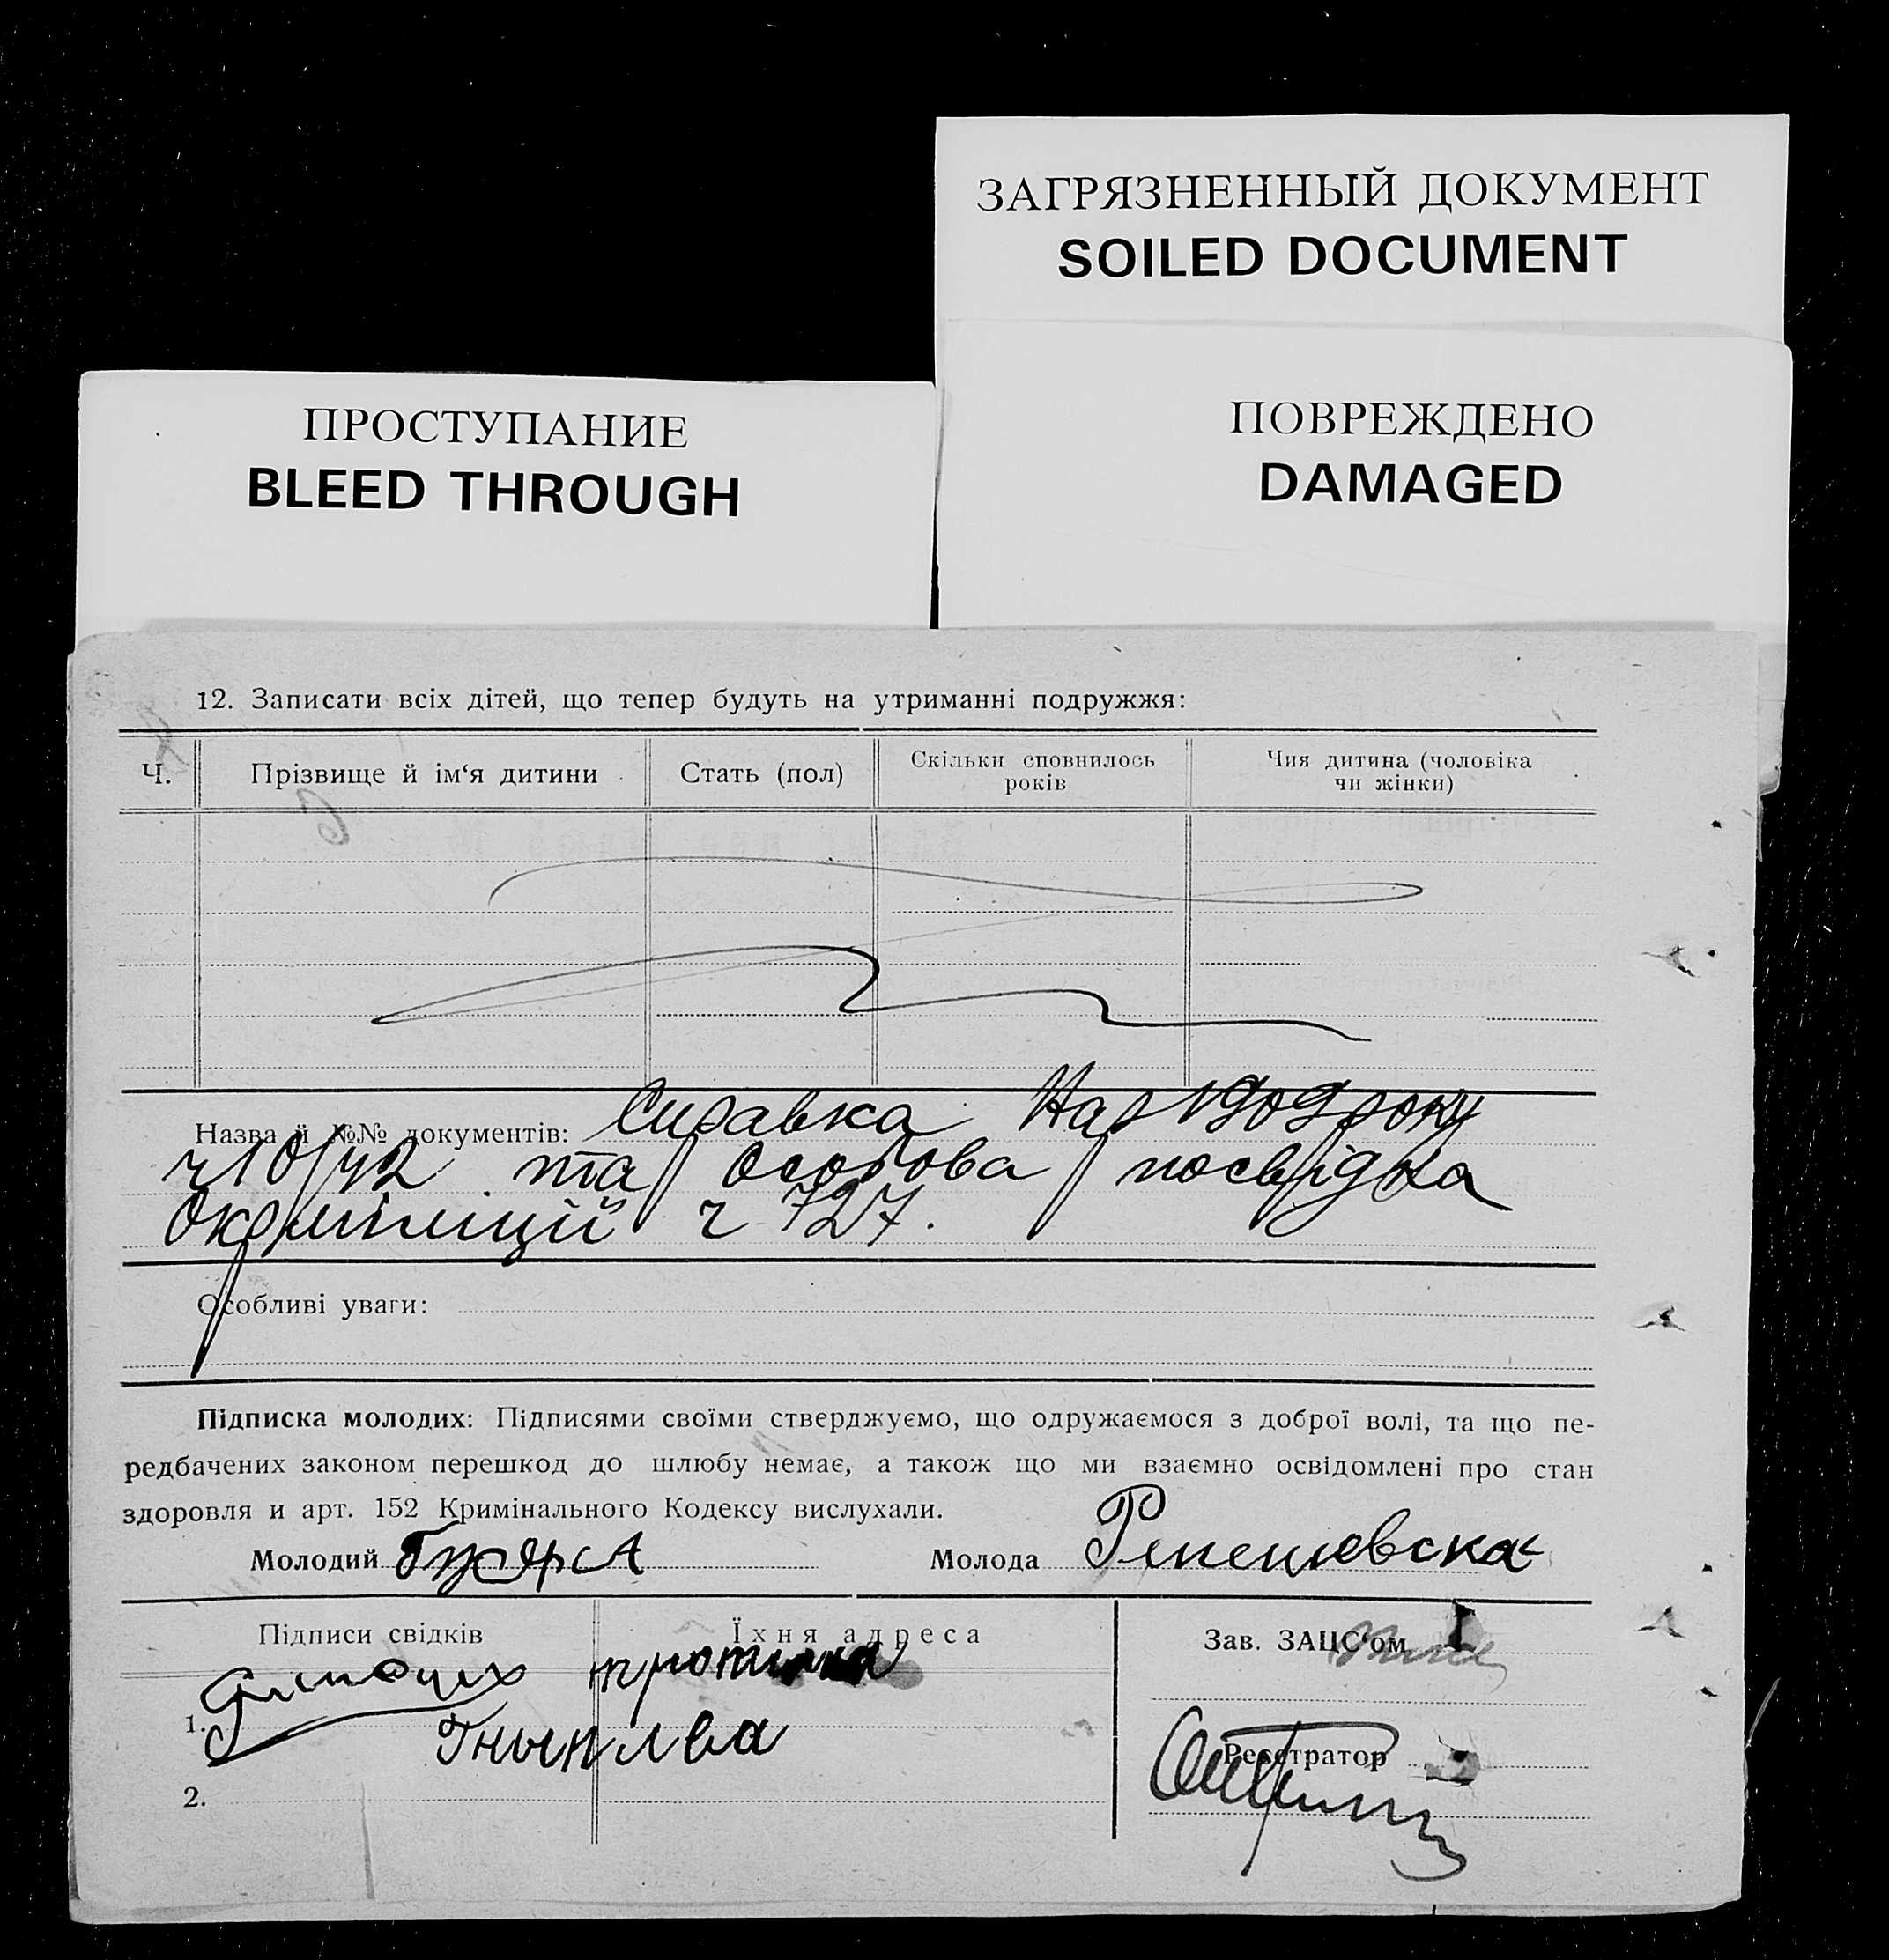 ЗАГРЯЗНЕННЫЙ ДОКУМЕНТ
SOILED DOCUMENT
ПРОСТУПАНИЕ
BLEED THROUGH
ПОВРЕЖДЕНО
DAMAGED
12. Записати всіх дітей, що тепер будуть на утриманні подружжя:
Ч.
Прізвище й ім‘я дитини
Стать (пол)
Скільки сповнилось
років
Чия дитина (чоловіка
чи жінки)
Назва й №№ документів: Справка
ч 10/42 та Особова посвідка
Окрміліції ч 727.
Особливі уваги:
Підписка молодих: Підписями своїми стверджуємо, що одружаємося з доброї волі, та що пе-
редбачених законом перешкод до шлюбу немає, а також що ми взаємно освідомлені про стан
здоровля и арт. 152 Кримінального Кодексу вислухали.
Молодий
Молода
Підписи свідків
Їхня адреса
Зав. ЗАЦС‘ом
1.
Реєстратор
2.